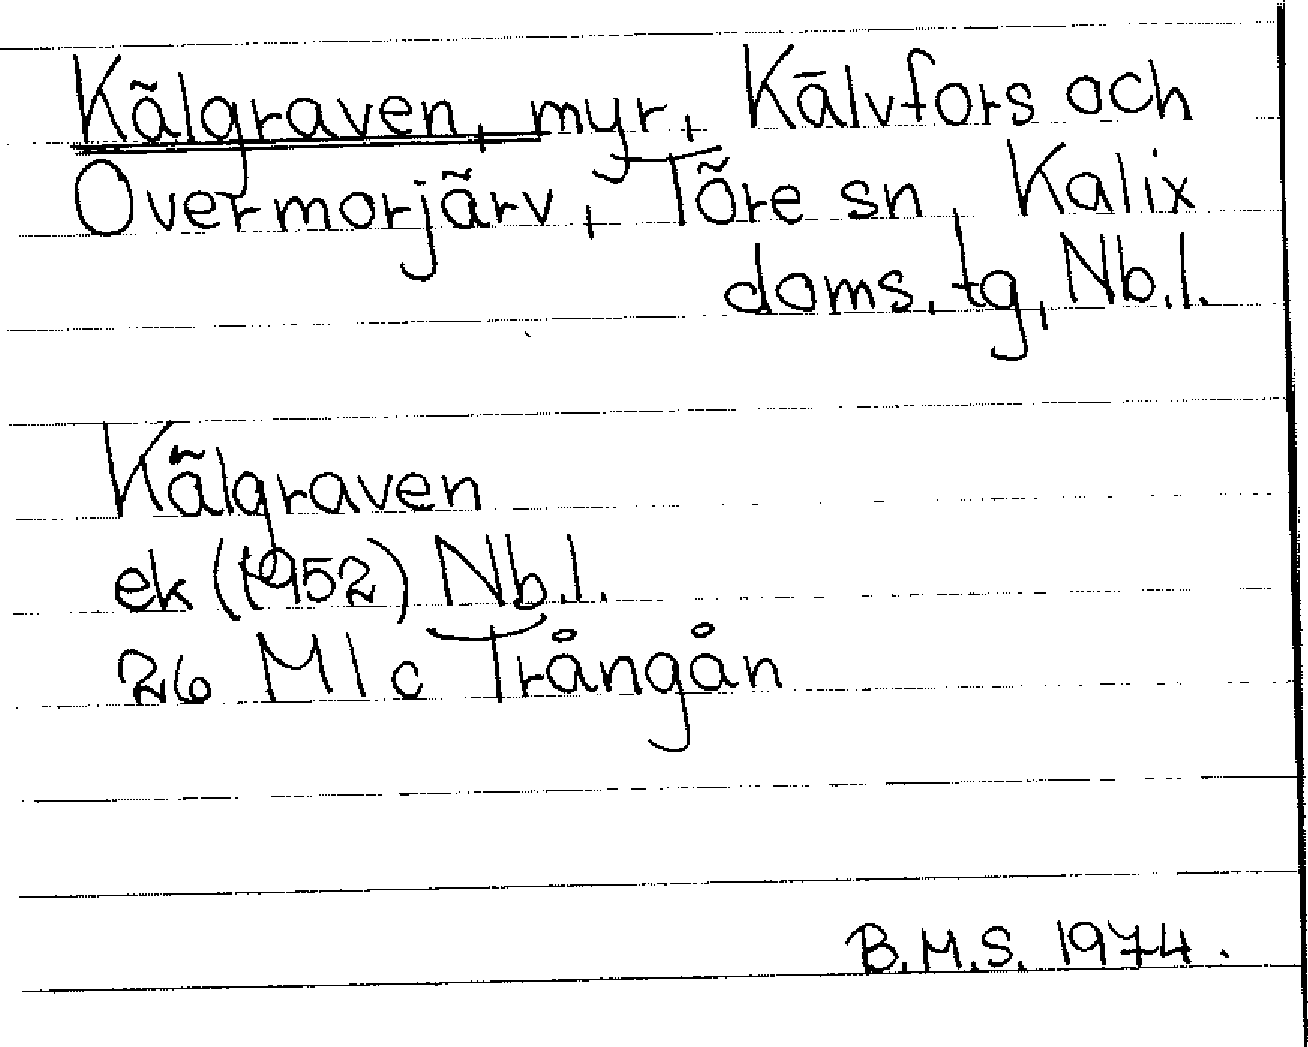 Kälgraven, myr, Kälvfors och
Övermorjärv, Töre sn, Kalix
doms. tg, Nb.l.
Kälgraven
ek (1952) Nb.l.
26 M 1 c Trångån
B.M.S. 1974.